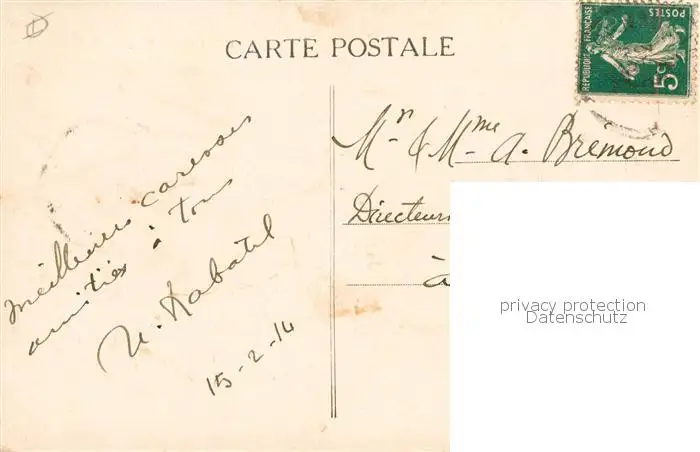 CARTE POSTALE
REPUBLIQUE FRANÇAISE
POSTES
5c
Mr & Mme A. Bremond
Directeur
à
privacy protection
Datenschutz
Meilleures caresses
amitiés à tous
15-2-14